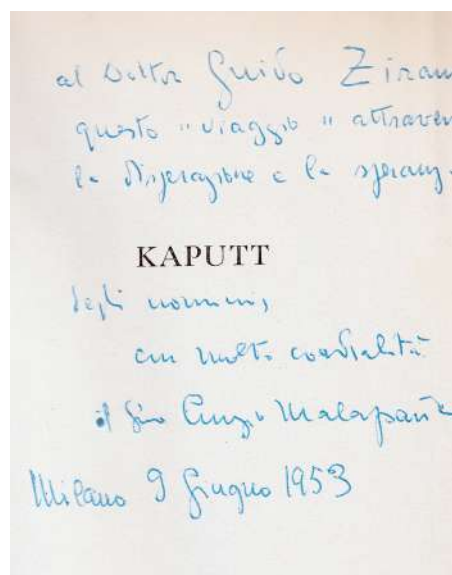 al Dottor Guido Ziram
questo "viaggio" attraver
la disperazione e la speranz
KAPUTT
degli uomini,
con molta cordialità
il suo Curzio Malaparte
Milano 9 Giugno 1953